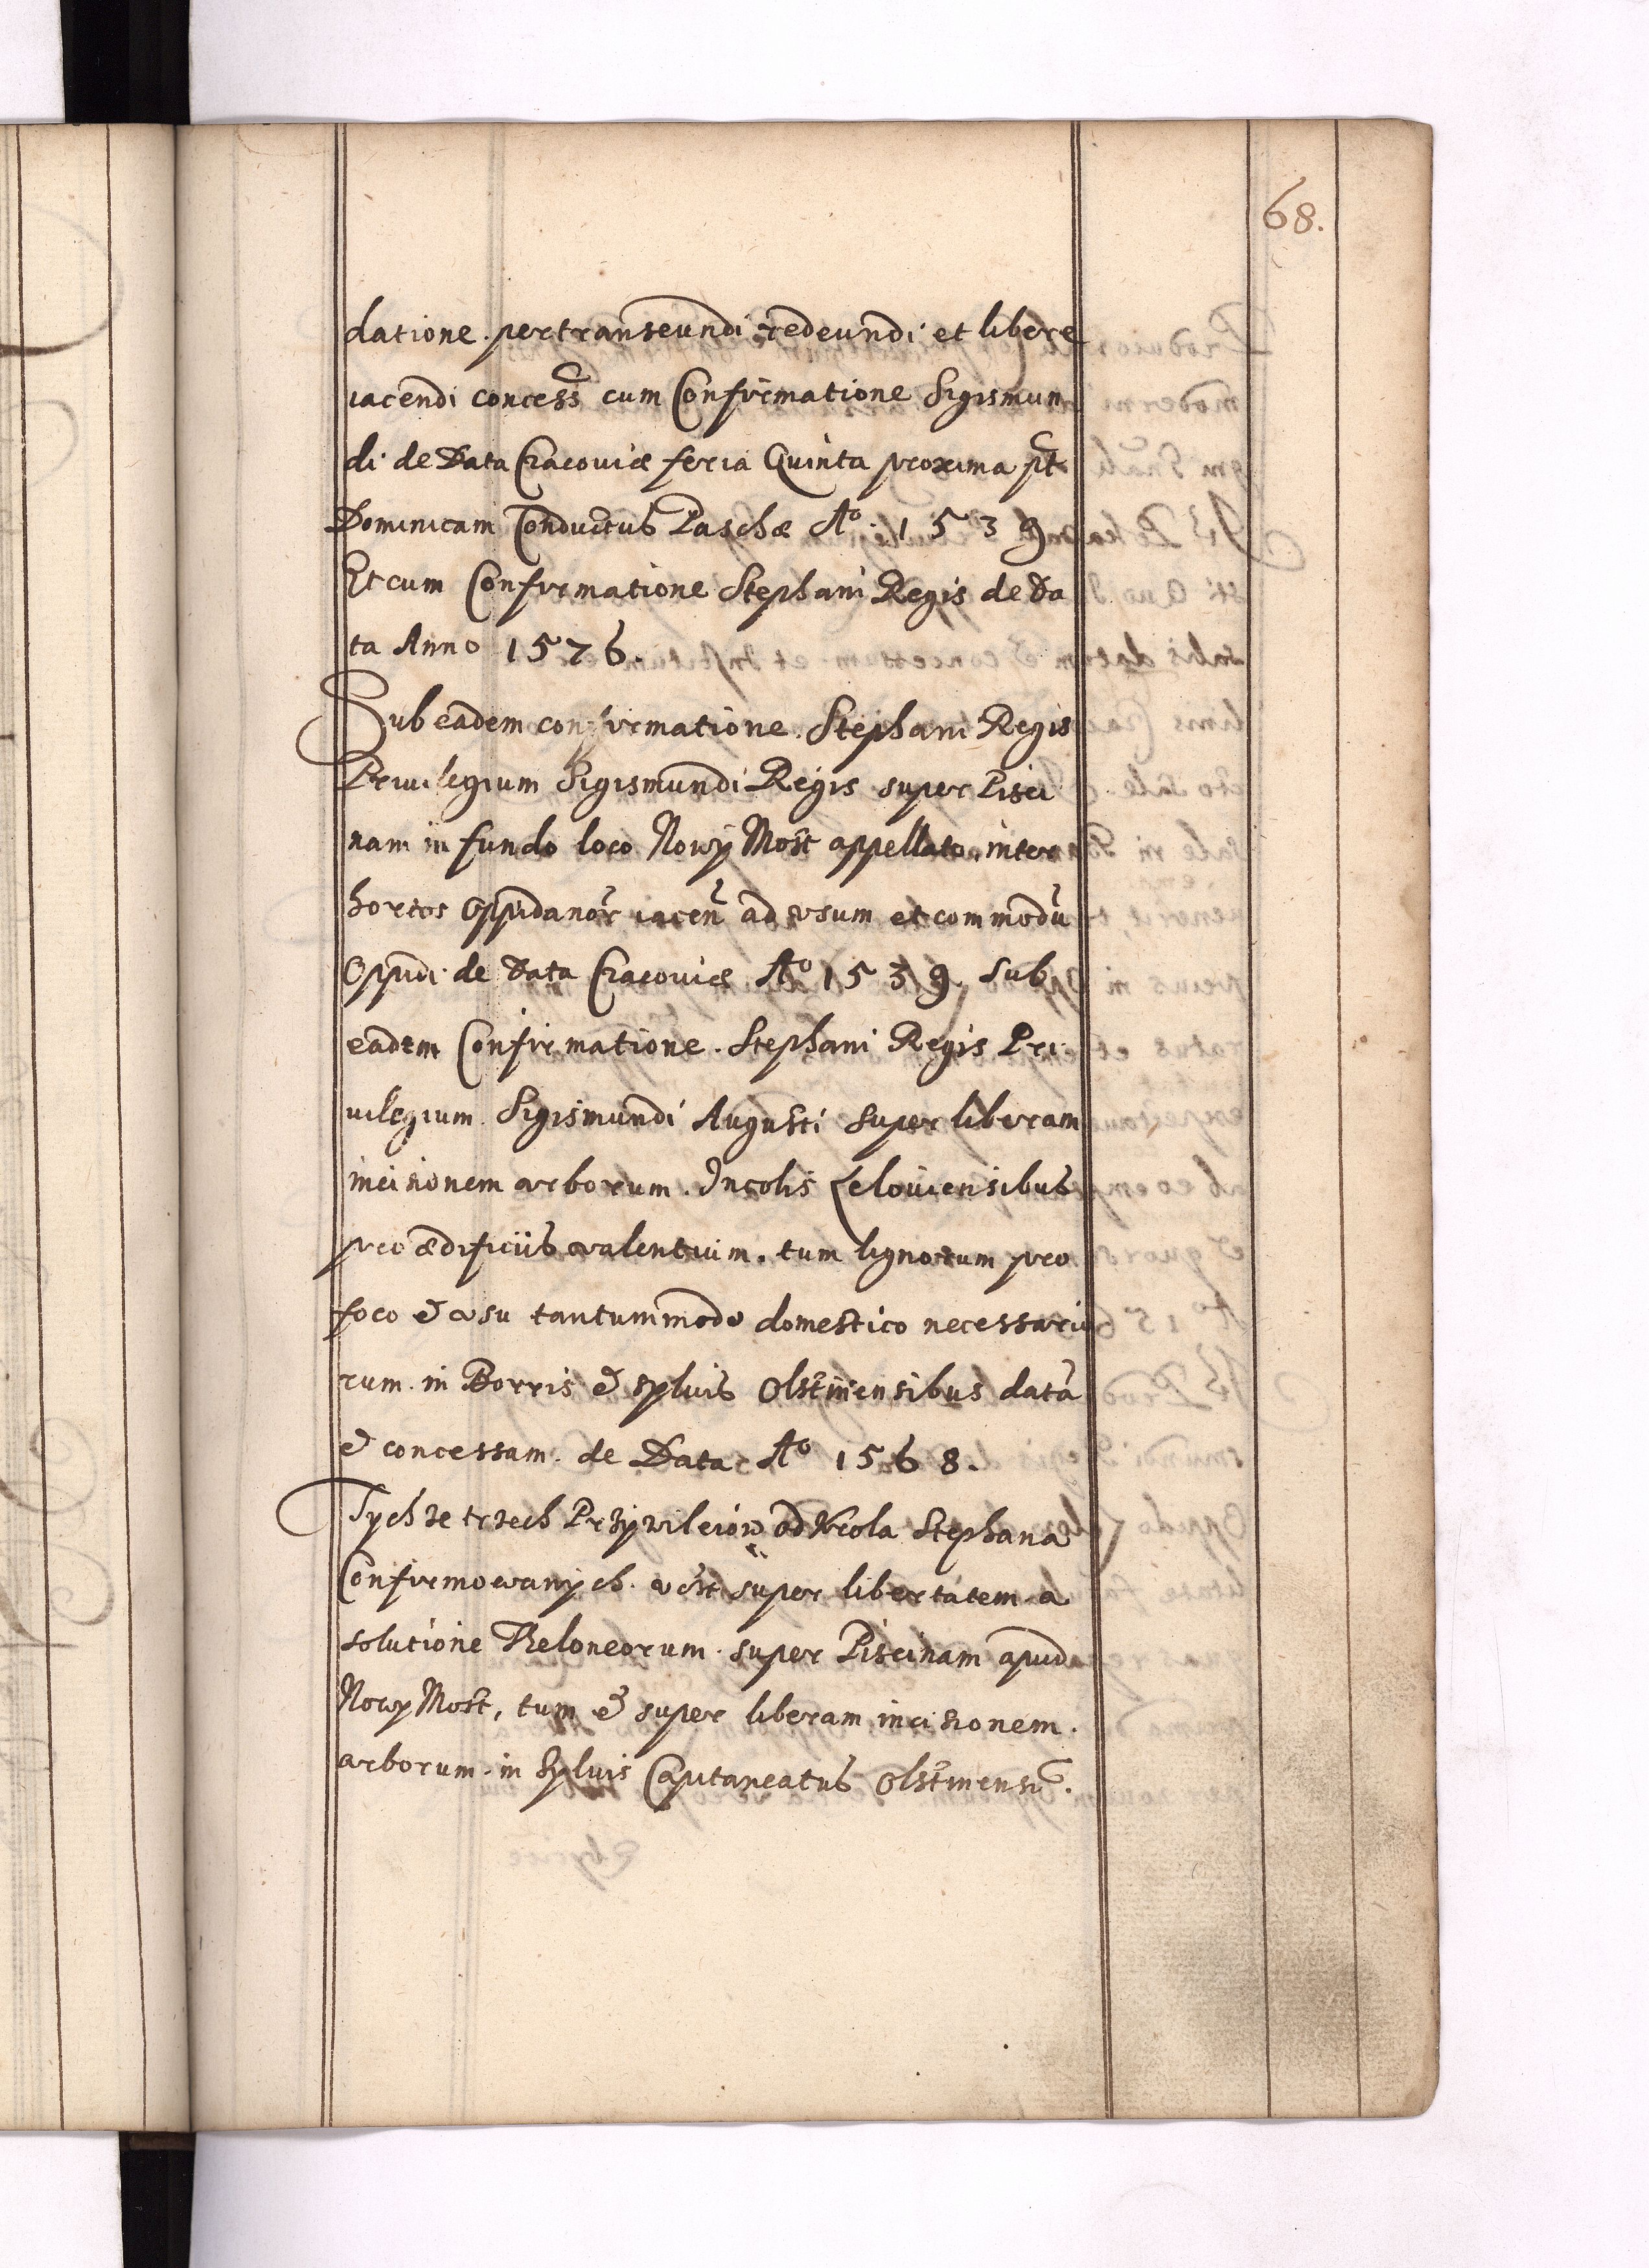 68.
datione. pertranseundi redeundi et libere
iacendi concess cum Confirmatione Sigismun
di de Data Cracoviæ feria Quinta proxima pt
Dominicam Conductus Paschæ Aº. 1539
Et cum Confirmatione Stephani Regis de Da
ta Anno 1576.
Sub eadem confirmatione. Stephani Regis
Privilegium Sigismundi Regis super Pisci
nam in fundo loco Nowy Most appellato, inter
hortos Oppidanor̃ iaceñ ad vsum et commodũ
Oppidi de Data Cracoviæ Aº 1539. Sub
eadem Confirmatione. Stephani Regis Pri
uilegium. Sigismundi Augusti super liberam
incisionem arborum. Incolis Lelouiensibus
pro ædificiis valentium. tum lignorum pro
foco & vsu tantummodo domestico necessario
rum. in Borris & syluis Olstinensibus datã
& concessam. de Data Aº 1568.
Tych ze trzech Przywileiow od Krola Stephana
Confirmowanych. vt st super libertatem a
solutione Theloneorum. super Piscinam apud
Nowy Most, tum & super liberam incisionem.
arborum. in Syluis Capitaneatus Olstinensis.